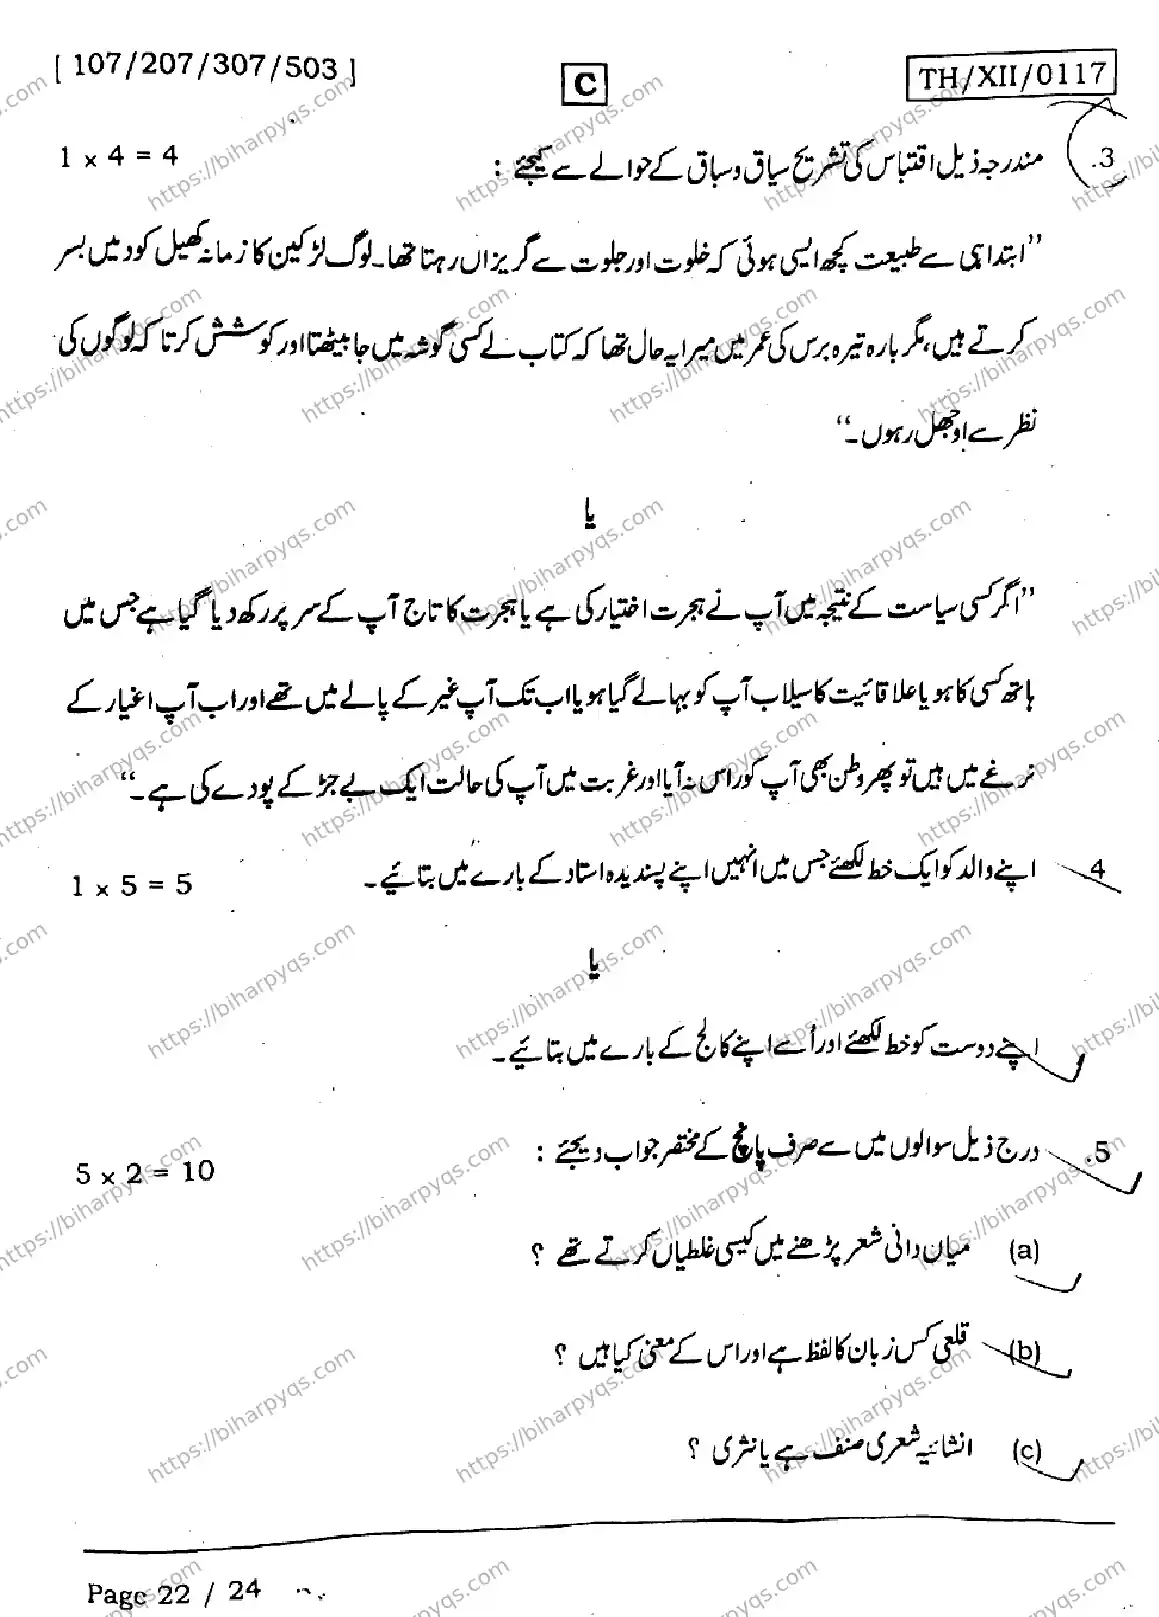 [ 107/207/307/503 ]
C
TH/XII/0117
3. مندرجہ ذیل اقتباس کی تشریح سیاق و سباق کے حوالے سے کیجئے : 1 x 4 = 4
”ابتدا ہی سے طبیعت کچھ ایسی ہوئی کہ خلوت اور جلوت سے گریزاں رہتا تھا۔ لوگ لڑکپن کا زمانہ کھیل کود میں بسر
کرتے ہیں، مگر بارہ تیرہ برس کی عمر میں میرا یہ حال تھا کہ کتاب لے کسی گوشہ میں جا بیٹھتا اور کوشش کرتا کہ لوگوں کی
نظر سے اوجھل رہوں۔“
یا
”اگر کسی سیاست کے نتیجہ میں آپ نے ہجرت اختیار کی ہے یا ہجرت کا تاج آپ کے سر پر رکھ دیا گیا ہے جس میں
ہاتھ کسی کا ہو یا علاقائیت کا سیلاب آپ کو بہا لے گیا ہو یا اب تک آپ غیر کے پالے میں تھے اور اب آپ اغیار کے
نرغے میں ہیں تو پھر وطن بھی آپ کو راس نہ آیا اور غربت میں آپ کی حالت ایک بے جڑ کے پودے کی ہے۔“
4 اپنے والد کو ایک خط لکھئے جس میں انہیں اپنے پسندیدہ استاد کے بارے میں بتائیے۔ 1 x 5 = 5
یا
اپنے دوست کو خط لکھئے اور اُسے اپنے کالج کے بارے میں بتائیے۔
5. درج ذیل سوالوں میں سے صرف پانچ کے مختصر جواب دیجئے : 5 x 2 = 10
(a) میاں دانی شعر پڑھنے میں کیسی غلطیاں کرتے تھے ؟
(b) قلعی کس زبان کا لفظ ہے اور اس کے معنی کیا ہیں ؟
(c) انشائیہ شعری صنف ہے یا نثری ؟
Page 22 / 24
https://biharpyqs.com